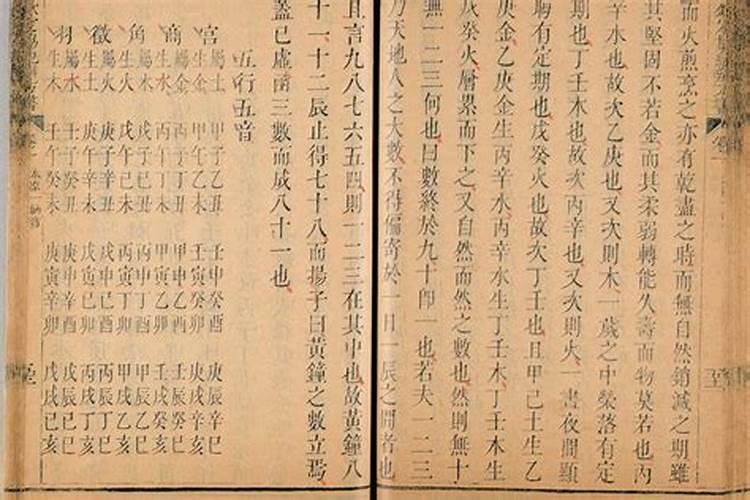 而火煎烹之亦有乾盡之時而無自然銷滅之期雖
其堅固不若金而其柔弱轉能久壽而物莫若也丙
辛水也故次乙庚也又次則木一歲之中榮落有定
期也丁壬木也故次丙辛也又次則火一晝夜間顯
晦有定期也戊癸火也故次丁壬也且甲己土生乙
庚金乙庚金生丙辛水丙辛水生丁壬木丁壬木生
戊癸火層累而下之又自然而然之數也然則無十
無一二三何也曰數終於九十卽一也若夫一二三
乃天地人之大數不得偏寄於一日一辰之間者也
且言九八七六五四則一二三在其中也故黃鐘八
十一十二辰止得七十八而揚子曰黃鐘之數立焉
蓋已虛函三數而成八十一也
五行五音
宮 屬土 甲子乙丑 壬申癸酉 庚辰辛巳
生金 甲午乙未 壬寅癸卯 庚戌辛亥
商 屬金 丙子丁丑 甲申乙酉 壬辰癸巳
生水 丙午丁未 甲寅乙卯 壬戌癸亥
角 屬木 戊子己丑 丙申丁酉 甲辰乙巳
生火 戊午己未 丙寅丁卯 甲戌乙亥
徵 屬火 庚子辛丑 戊申己酉 丙辰丁巳
生土 庚午辛未 戊寅己卯 丙戌丁亥
羽 屬水 壬子癸丑 庚申辛酉 戊辰己巳
生木 壬午癸未 庚寅辛卯 戊戌己亥